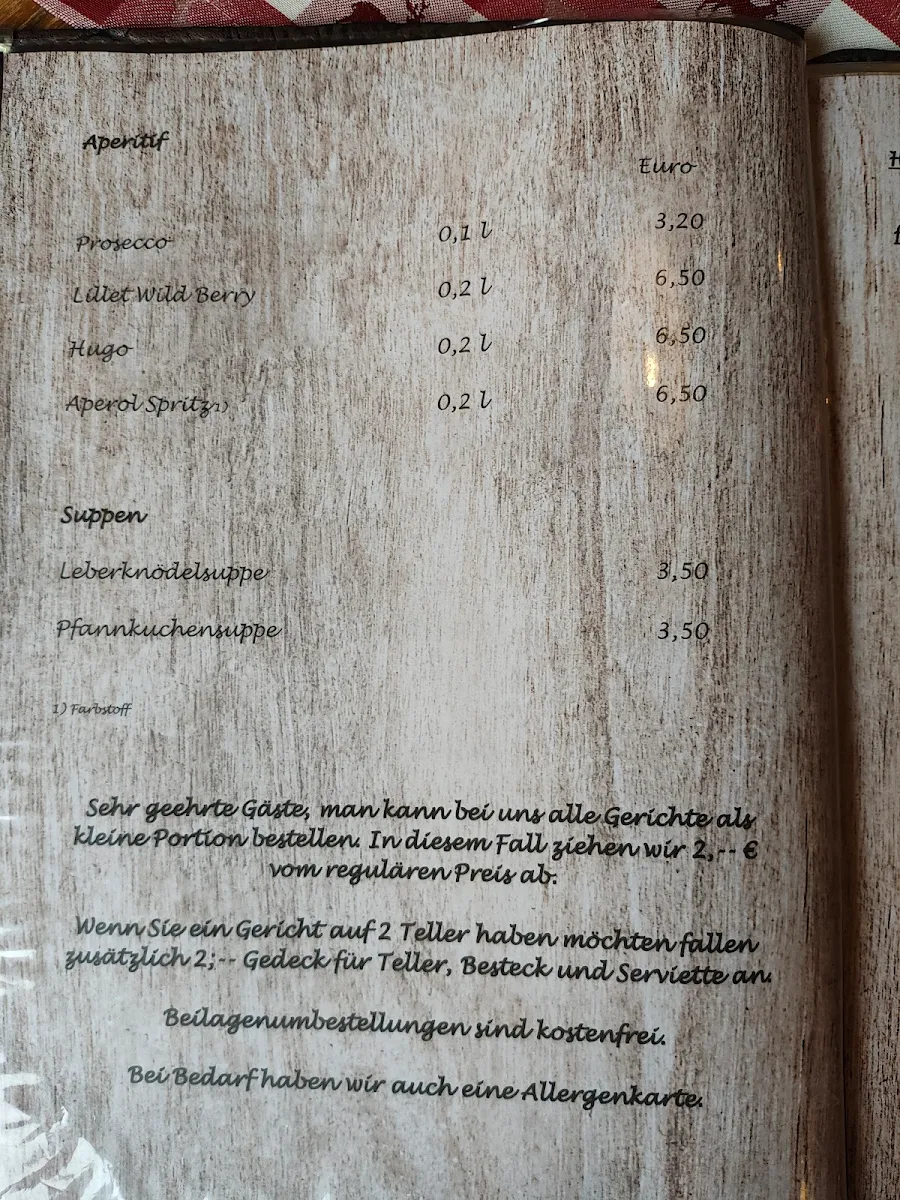 Aperitif
Euro
Prosecco 0,1 l 3,20
Lillet Wild Berry 0,2 l 6,50
Hugo 0,2 l 6,50
Aperol Spritz1) 0,2 l 6,50
Suppen
Leberknödelsuppe 3,50
Pfannkuchensuppe 3,50
1) Farbstoff
Sehr geehrte Gäste, man kann bei uns alle Gerichte als
kleine Portion bestellen. In diesem Fall ziehen wir 2,-- €
vom regulären Preis ab.
Wenn Sie ein Gericht auf 2 Teller haben möchten fallen
zusätzlich 2;-- Gedeck für Teller, Besteck und Serviette an.
Beilagenumbestellungen sind kostenfrei.
Bei Bedarf haben wir auch eine Allergenkarte.